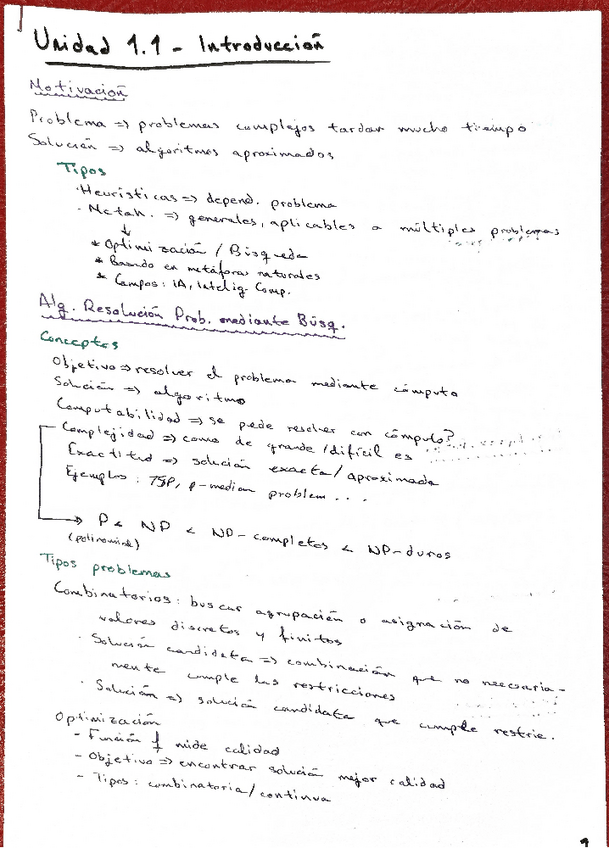 Unidad 1.1 - Introducción
Motivación
Problema => problemas complejos tardan mucho tiempo
Solución => algoritmos aproximados
Tipos
· Heurísticas => depend. problema
· Metah. => generales, aplicables a múltiples problemas
↓
* Optimización / Búsqueda
* Basado en metáforas naturales
* Campos: IA, Intelig. Comp.
Alg. Resolución Prob. mediante Búsq.
Conceptos
Objetivo => resolver el problema mediante cómputo
Solución => algoritmo
Computabilidad => se puede resolver con cómputo?
Complejidad => como de grande/difícil es
Exactitud => solución exacta/aproximada
Ejemplos: TSP, p-median problem...
→ P < NP < NP-completos < NP-duros
(polinomiales)
Tipos problemas
Combinatorios: buscar agrupación o asignación de
valores discretos y finitos
· Solución candidata => combinación que no necesaria-
mente cumple las restricciones
· Solución => solución candidata que cumple restric.
Optimización
- Función f mide calidad
- Objetivo => encontrar solución mejor calidad
- Tipos: combinatoria/continua
1